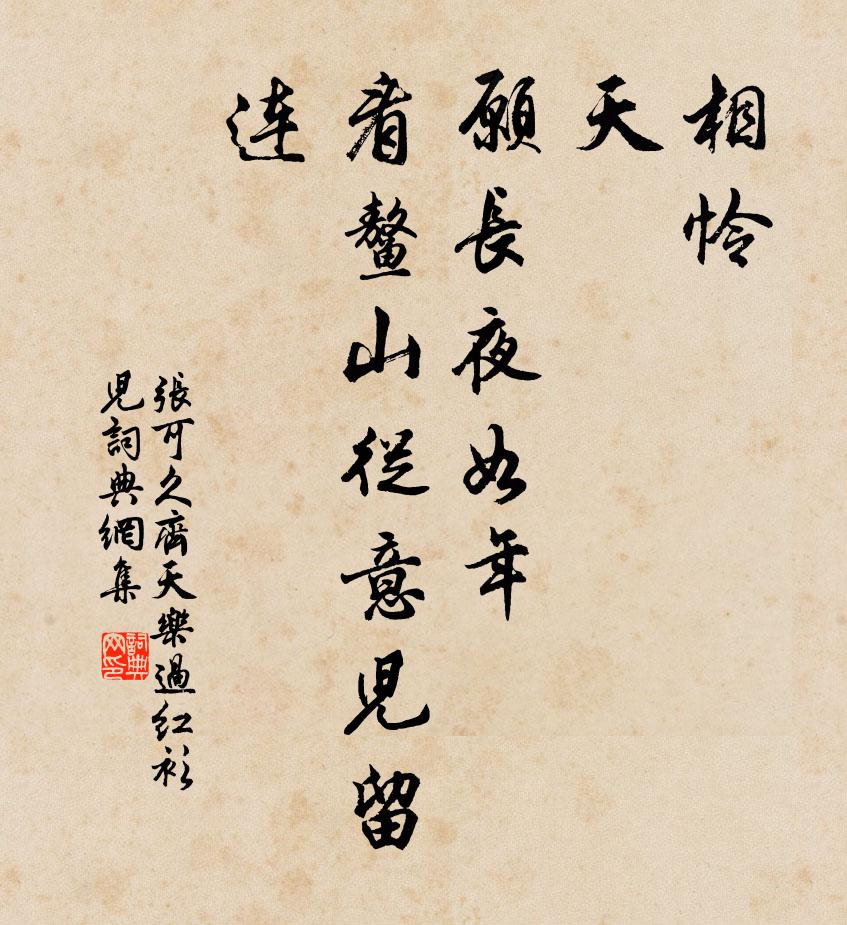 相怜
天
願長夜如年
看鼇山從意兒留
連
張可久齊天樂過紅衫
兒詞典網集
詞典網印